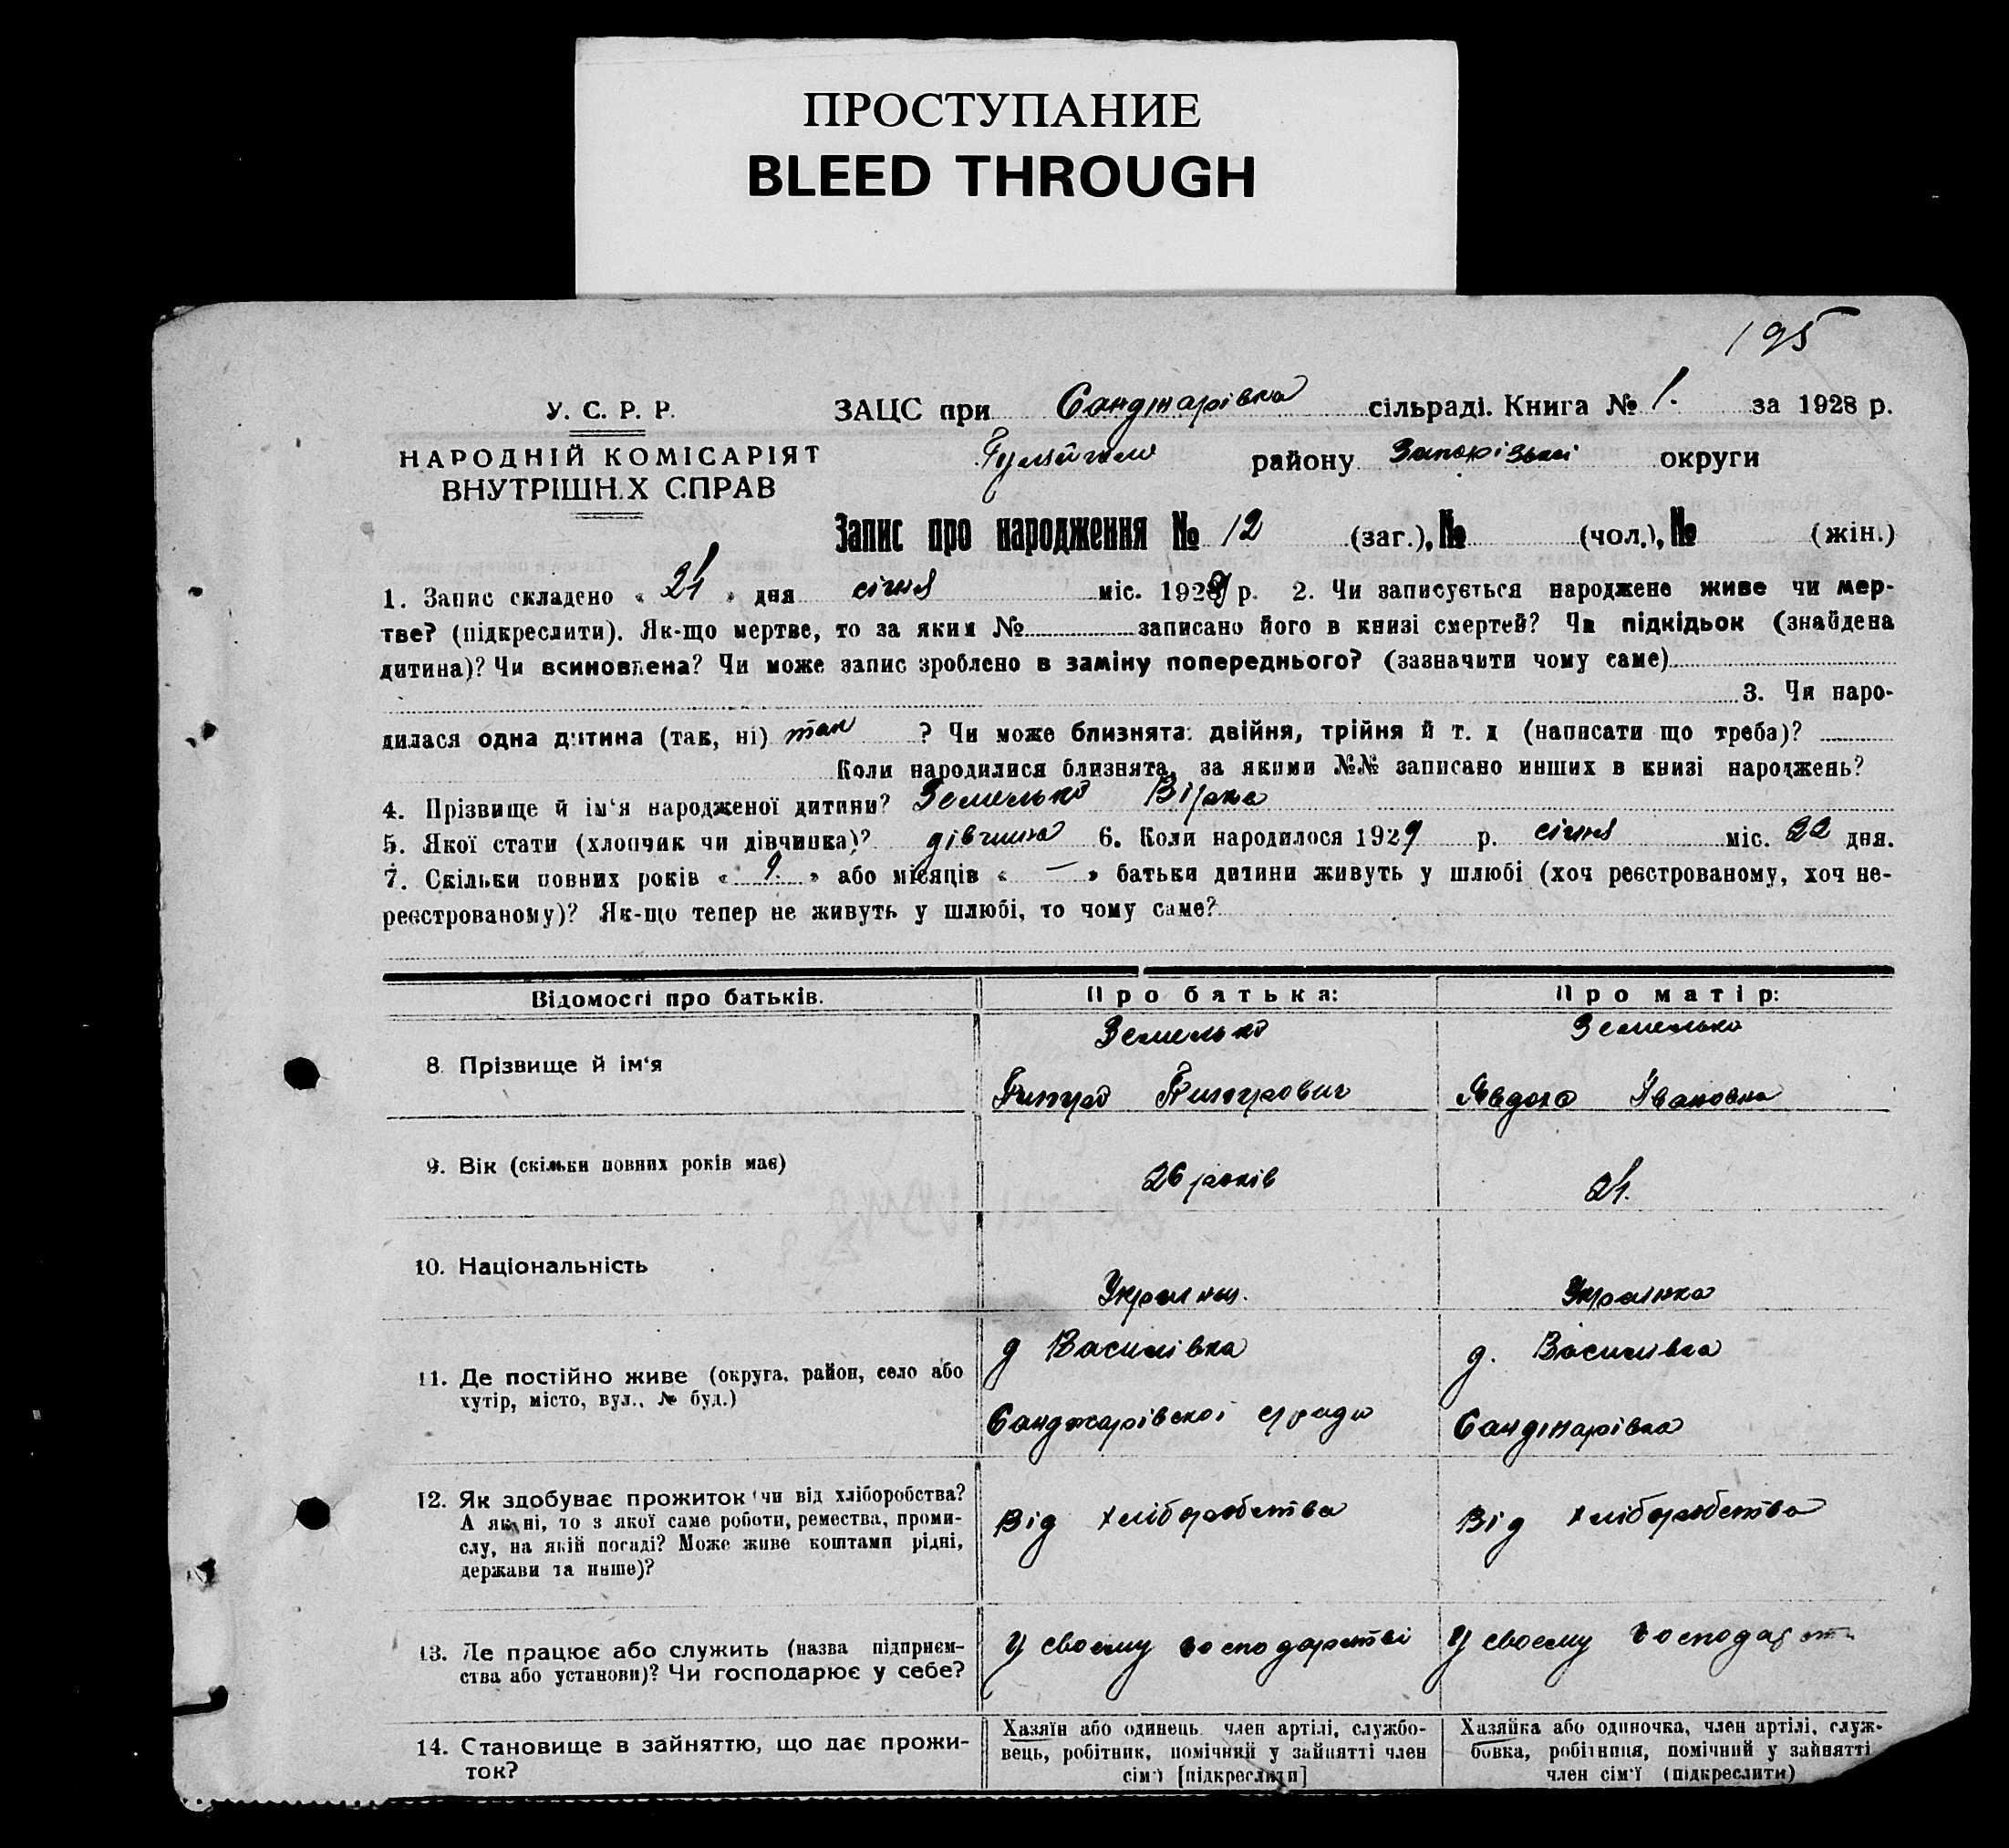 ПРОСТУПАНИЕ
BLEED THROUGH
195
У. С. Р. Р.
НАРОДНІЙ КОМІСАРІЯТ
ВНУТРІШН.Х СПРАВ
ЗАЦС при Санджарівка сільраді. Книга № 1. за 1928 р.
району Запорізькі округи
Запис про народження № 12 (заг.), № (чол.), № (жін.)
1. Запис складено « 21 » дня січня міс. 1929 р. 2. Чи записується народжене живе чи мер-
тве? (підкреслити). Як-що мертве, то за яким № записано його в книзі смертей? Чи підкідьок (знайдена
дитина)? Чи всиновлена? Чи може запис зроблено в заміну попереднього? (зазначити чому саме)
3. Чи наро-
дилася одна дитина (так, ні) так ? Чи може близнята: двійня, трійня й т. д (написати що треба)?
Коли народилися близнята, за якими №№ записано инших в книзі народжень?
4. Прізвище й ім‘я народженої дитини? Земелько Вірка
5. Якої стати (хлопчик чи дівчинка)? дівчина 6. Коли народилося 1929 р. січня міс. 22 дня.
7. Скільки повних років « 9. » або місяців « — » батьки дитини живуть у шлюбі (хоч реєстрованому, хоч не-
реєстрованому)? Як-що тепер не живуть у шлюбі, то чому саме?
Відомості про батьків. Про батька: Про матір:
8. Прізвище й ім‘я
Земелько Земелько
Явдоха Івановна
9. Вік (скільки повних років має) 26 років 21.
10. Національність Українц. Українка
11. Де постійно живе (округа, район, село або
хутір, місто, вул., № буд.)
д Василівка д. Василівка
Санджарівскої с/ради Санджарівка
12. Як здобуває прожиток (чи від хліборобства?
А як ні, то з якої саме роботи, ремества, проми-
слу, на якій посаді? Може живе коштами рідні,
держави та инше)?
Від хліборобства Від хліборобства
13. Де працює або служить (назва підприєм-
ства або установи)? Чи господарює у себе?
У своєму господарстві У своєму господарст
14. Становище в зайняттю, що дає прожи-
ток?
Хазяїн або одинець, член артілі, службо-
вець, робітник, помічний у зайнятті член
сім‘ї [підкреслити]
Хазяйка або одиночка, член артілі, служ-
бовка, робітниця, помічний у зайнятті
член сім‘ї (підкреслити)